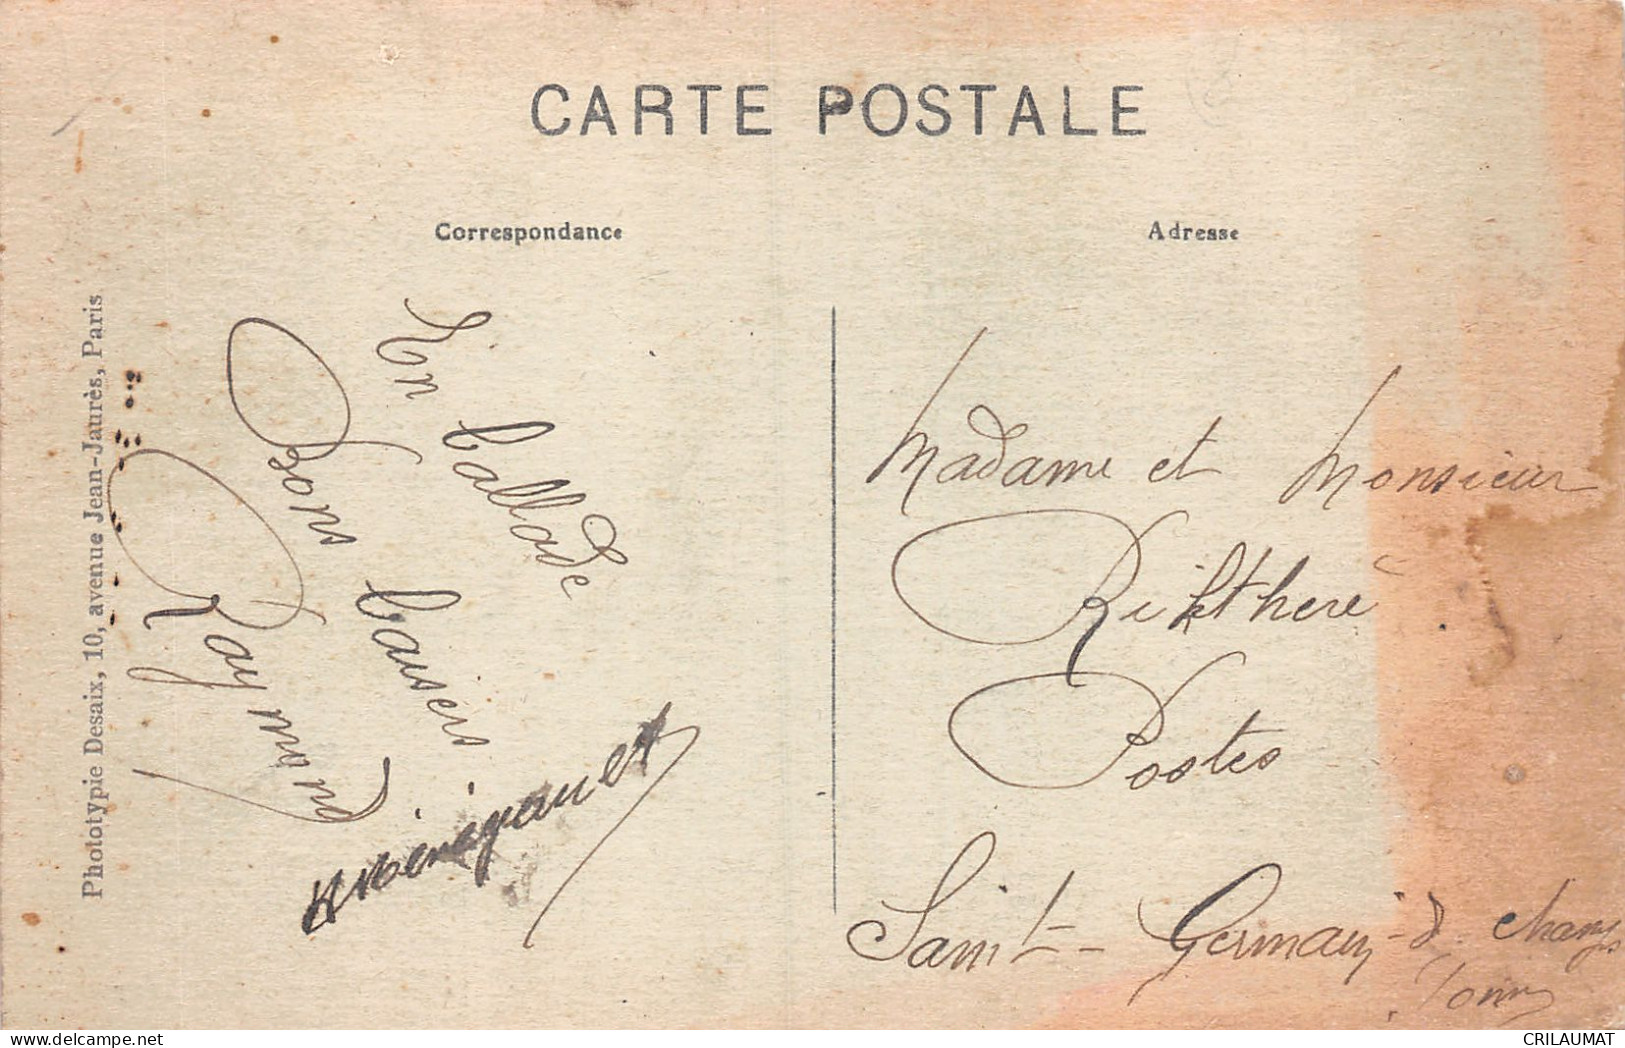 CARTE POSTALE
Correspondance
Adresse
Phototypie Desaix, 10, avenue Jean-Jaurès, Paris
En ballade
Bons baisers
Raymond
Madame et Monsieur
Postes
Saint-Germain-d. champs
Yonne
CRILAUMAT